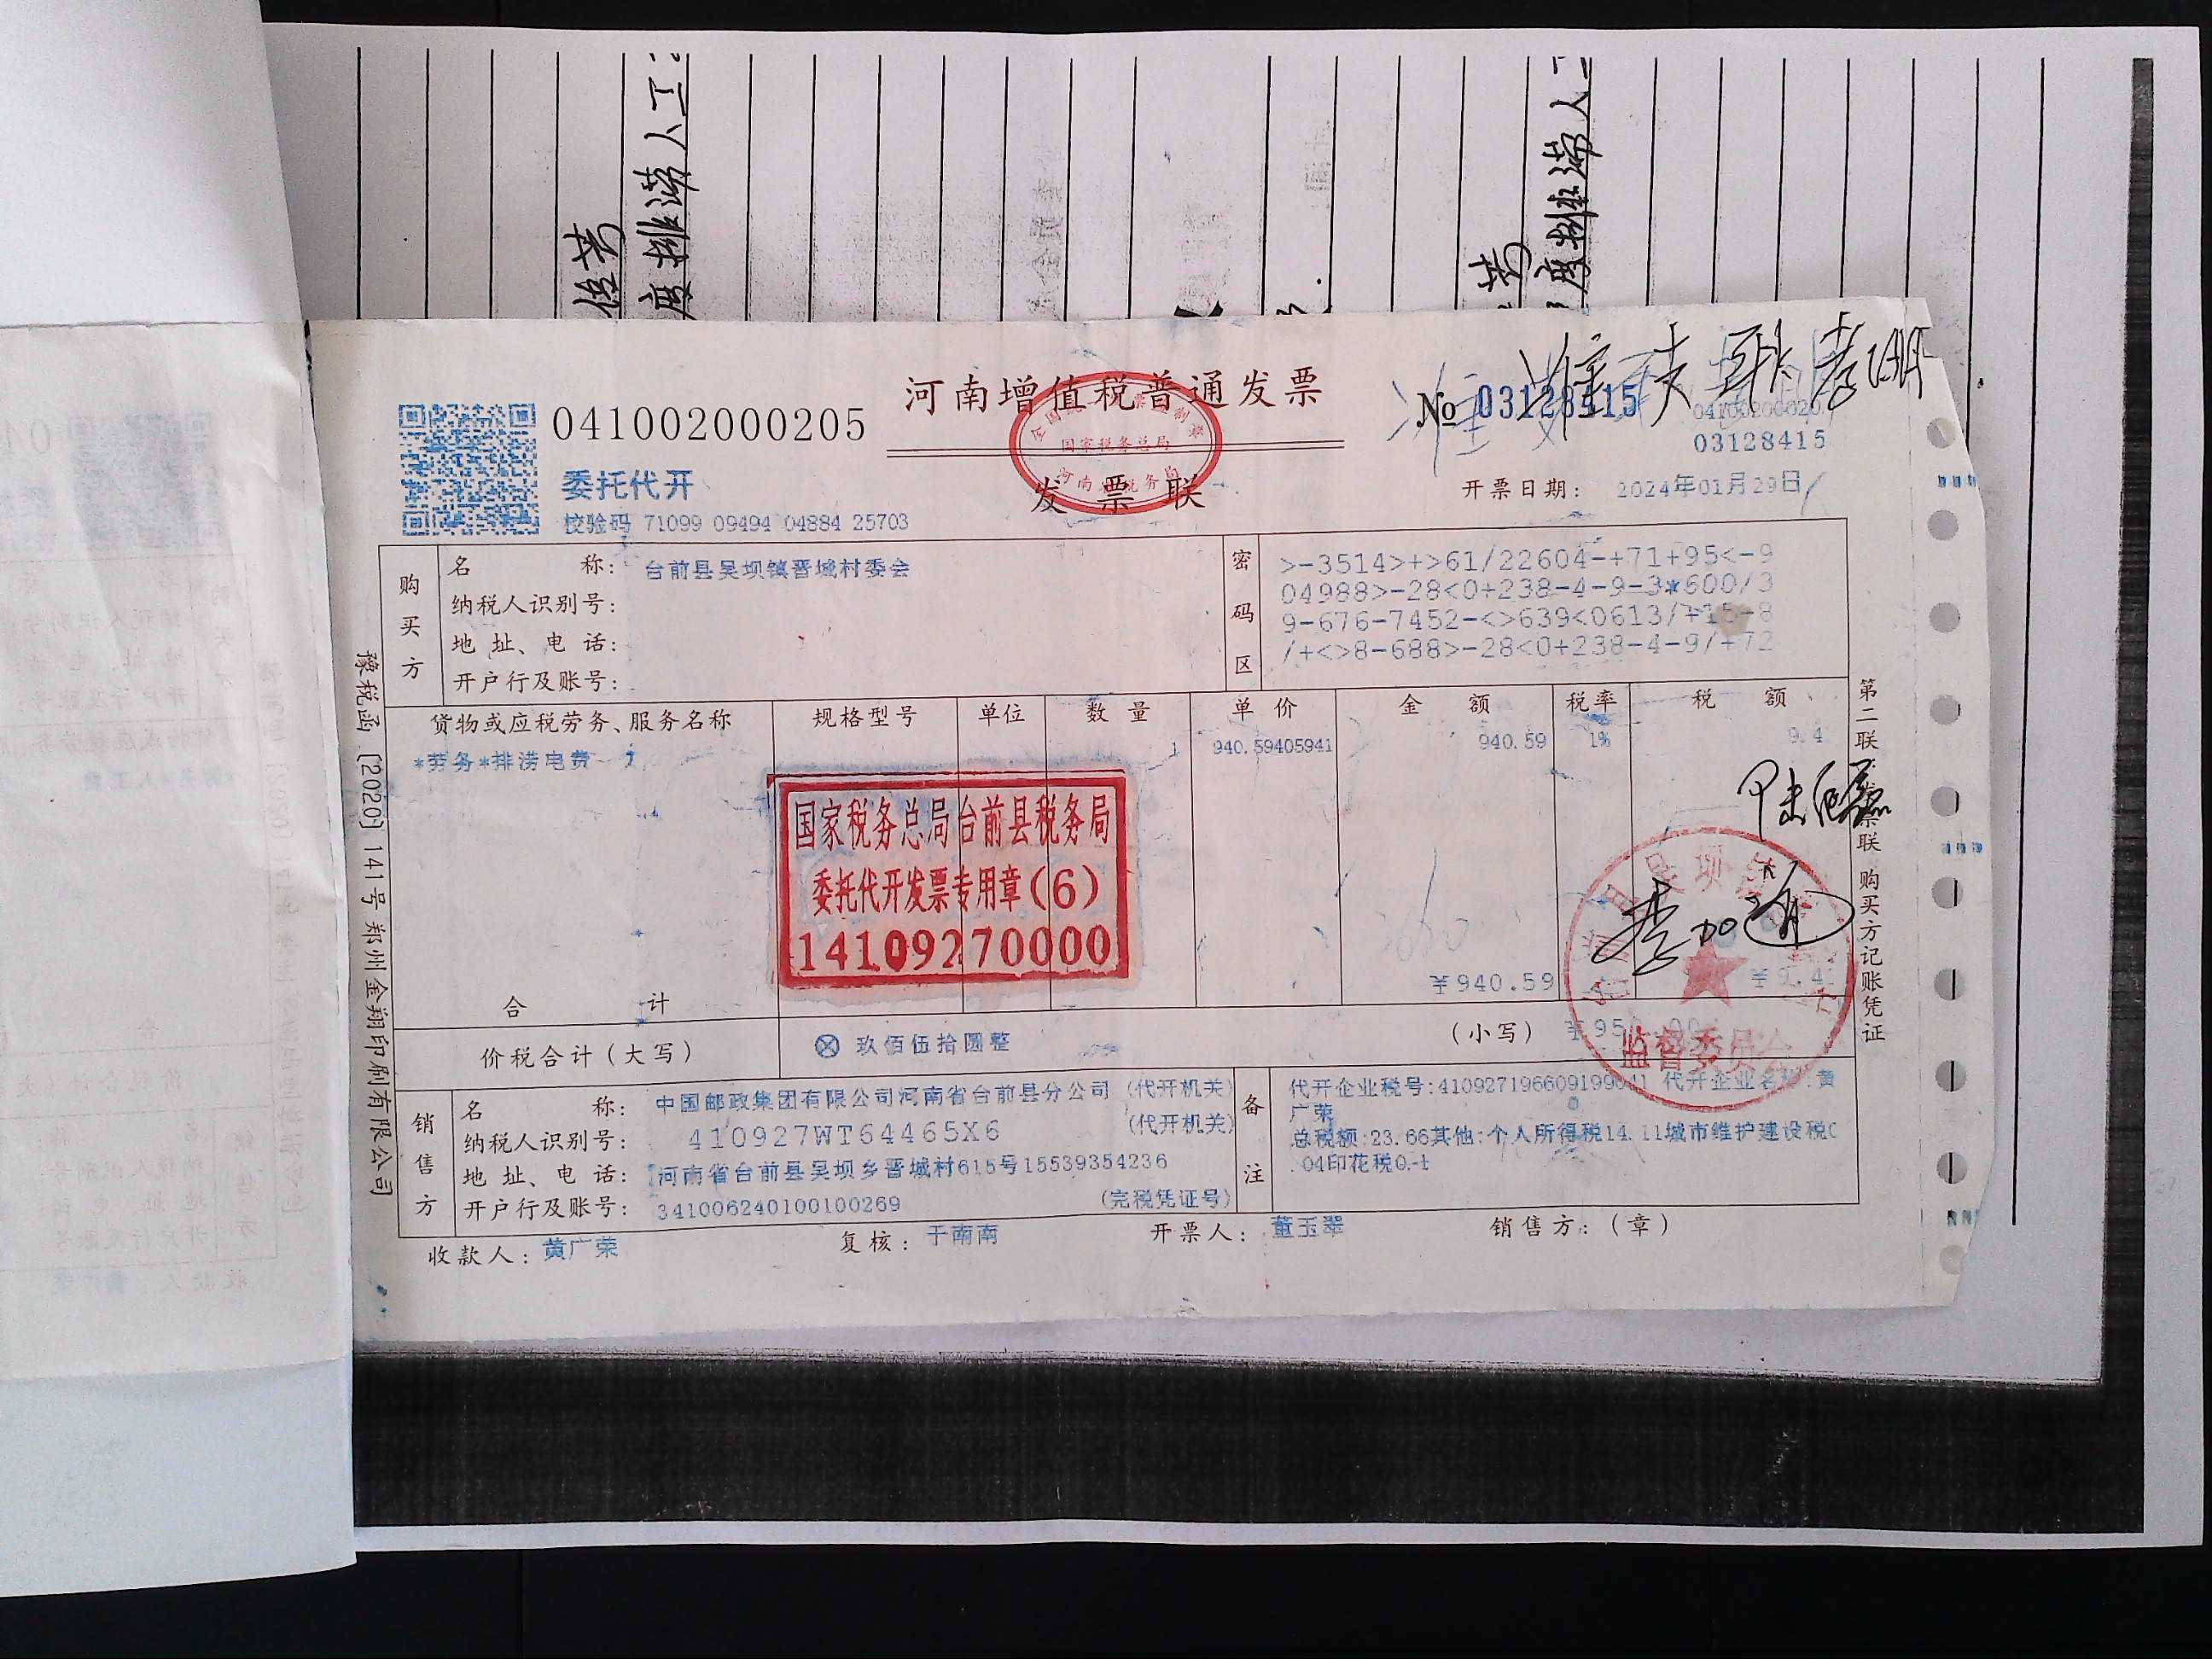 河南增值税普通发票
发票联
国家税务总局
041002000205
委托代开
校验码 71099 09494 04884 25703
№ 03128415
03128415
开票日期: 2024年01月29日
购买方
名称: 台前县吴坝镇晋城村委会
纳税人识别号:
地址、电话:
开户行及账号:
密码区
>-3514>+>61/22604-+71+95<-9
04988>-28<0+238-4-9-3*600/3
9-676-7452-<>639<0613/+15-8
/+<>8-688>-28<0+238-4-9/+72
货物或应税劳务、服务名称 规格型号 单位 数量 单价 金额 税率 税额
*劳务*排涝电费 1 940.59405941 940.59 1% 9.4
国家税务总局台前县税务局
委托代开发票专用章(6)
14109270000
合计 ¥940.59
价税合计(大写) ⊗ 玖佰伍拾圆整 (小写)
监督委员会
销售方
名称: 中国邮政集团有限公司河南省台前县分公司 (代开机关)
纳税人识别号: 410927WT64465X6 (代开机关)
地址、电话: 河南省台前县吴坝乡晋城村615号15539354236
开户行及账号: 341006240100100269 (完税凭证号)
备注
代开企业税号:410927196609199041 代开企业名称:黄
广荣
总税额:23.66其他:个人所得税14.11城市维护建设税0
.04印花税0.
收款人: 黄广荣 复核: 于南南 开票人: 董玉翠 销售方:(章)
豫税函〔2020〕141号郑州金翔印刷有限公司
第二联:发票联 购买方记账凭证